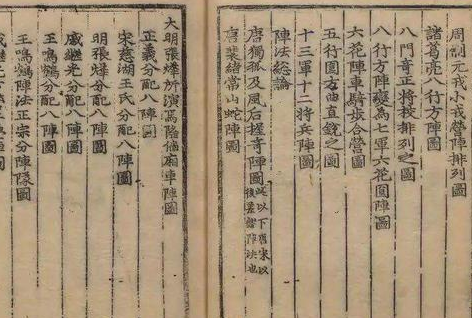 周制元戎小戎營陣排列圖
諸葛亮八行方陣圖
八門奇正將校排列之圖
八行方陣變為七軍六花圓陣圖
六花陣車騎步合營圖
五行圓方曲直銳之圖
十三軍十二將兵陣圖
陣法總論
唐獨孤及風后握奇陣圖 此以下唐宋以後
唐裴緒常山蛇陣圖
大明張燁所演萬陰偏廂車陣圖
正義分配八陣圖
宋慈湖王氏分配八陣圖
明張燁分配八陣圖
戚繼光分配八陣圖
王鳴鶴分配八陣圖
王鳴鶴陣法正宗分陣隊圖
戚繼光